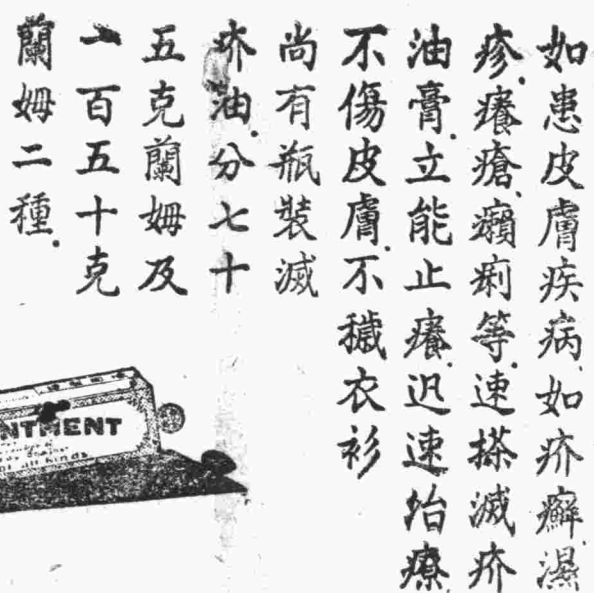 如患皮膚疾病、如疥癬濕
疹、癢瘡、癩痢等、速搽滅疥
油膏、立能止癢、迅速治療
不傷皮膚、不穢衣衫
尚有瓶裝滅
疥油、分七十
五克蘭姆及
一百五十克
蘭姆二種、
NTMENT
of all kinds